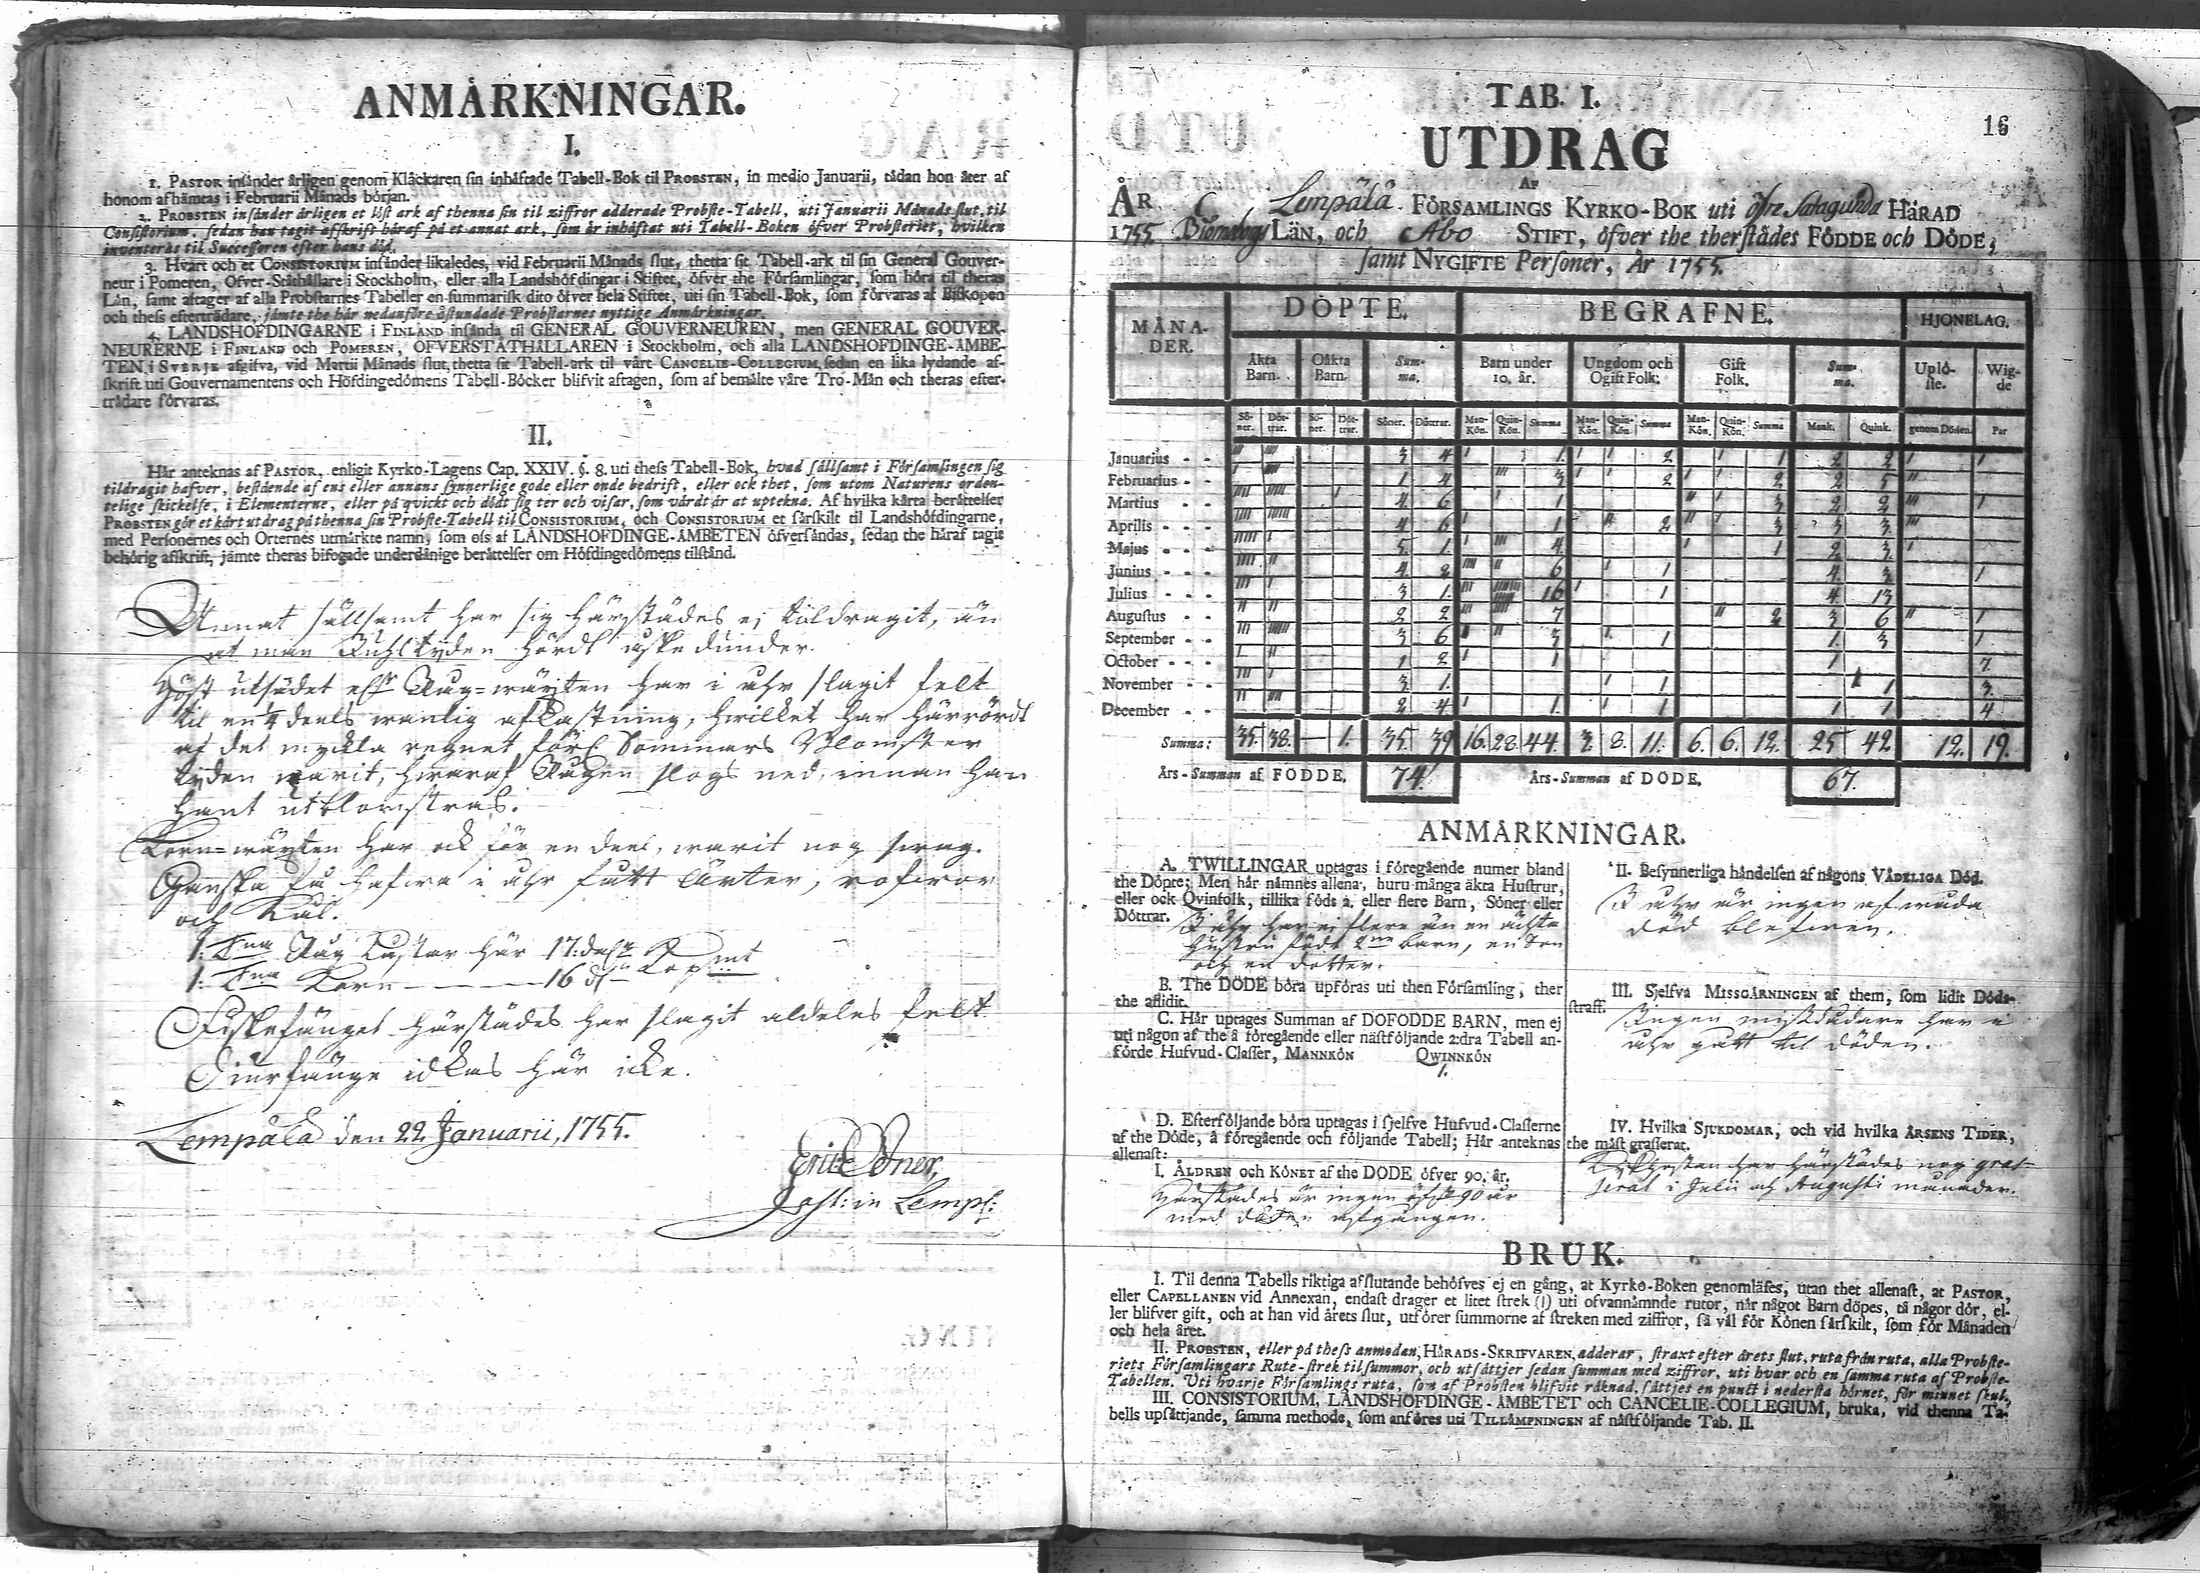 ANMÅRKNINGAR.
I.
1. PASTOR insånder årligen genom Klåckaren sin inhåftade Tabell-Bok til PROBSTEN, in medio Januarii, tådan hon åter af
honom afhåmtas i Februarii Månads början.
2. PROBSTEN insånder årligen et löst ark af thenna sin til ziffror adderade Probste-Tabell, uti Januarii Månads slut, til
Consistorium, sedan han tagit afskrift håraf på et annat ark, som år inhåftat uti Tabell-Boken öfver Probsteriet, hvilken
inventeras til Successoren efter hans död.
3. Hvart och et CONSISTORIUM insånder likaledes, vid Februarii Månads slut, thetta sit Tabell-ark til sin General Gouver-
neur i Pomeren, Öfver-Ståthållare i Stockholm, eller alla Landshöfdingar i Stiftet, öfver the Församlingar, som höra til theras
Lån, samt aftager af alla Probstarnes Tabeller en summarisk dito öfver hela Stiftet, uti sin Tabell-Bok, som förvaras af Biskopen
och thess eftertrådare, jåmte the hår nedanföre åstundade Probstarnes nyttige Anmårkningar.
4. LANDSHÖFDINGARNE i FINLAND insånda til GENERAL GOUVERNEUREN, men GENERAL GOUVER-
NEURERNE i FINLAND och POMEREN, ÖFVERSTÅTHÅLLAREN i Stockholm, och alla LANDSHÖFDINGE-ÅMBE-
TEN i SVERJE afgifva, vid Martii Månads slut, thetta sit Tabell-ark til vårt CANCELIE-COLLEGIUM, sedan en lika lydande af-
skrift uti Gouvernamentens och Höfdingedömens Tabell-Böcker blifvit aftagen, som af bemålte våre Tro-Mån och theras efter-
trådare förvaras.
II.
Hår anteknas af PASTOR, enligit Kyrko-Lagens Cap. XXIV. §. 8. uti thess Tabell-Bok, hvad sållsamt i Församlingen sig
tildragit hafver, bestående af ens eller annans synnerlige gode eller onde bedrift, eller ock thet, som utom Naturens orden-
telige skickelse, i Elementerne, eller på qvickt och dödt sig ter och visar, som vårdt år at uptekna. Af hvilka kårta beråttelser
PROBSTEN gör et kårt utdrag på thenna sin Probste-Tabell til CONSISTORIUM, och CONSISTORIUM et sårskilt til Landshöfdingarne,
med Personernes och Orternes utmårkte namn, som oss af LANDSHÖFDINGE-ÅMBETEN öfversåndas, sedan the håraf tagit
behörig afskrift, jåmte theras bifogade underdånige beråttelser om Höfdingedömens tilstånd.
Annat sällsamt har sig härstädes ej tildragit, än
at man Juhltyden hördt åskedunder.
Höst utsädet eller Rug-wäxten har i åhr slagit felt
til en 1/4 deels wanlig afkastning, hwilket har härrördt
af det myckla regnet förl. Sommars Blomster
tyden warit, hwaraf Rugen slogs ned, innan han
hant utblomstras.
Korn-wäxten har ock för en deel, warit nog swag.
Ganska få hafwa i åhr fått ärter, rofwor
och Kål.
1. T:na Rug kostar här 17: dal:r K
1: T:na Korn - - - 16 d:r Kop:mt
Fiskefänget härstädes har slagit aldeles felt
Diurfänge idkas här icke.
Lempälä den 22. Januarii, 1755.
Eric Odner,
Past: in Lempl:
16
TAB. I.
UTDRAG
AF
ÅR C Lempälä FÖRSAMLINGS KYRKO-BOK uti öfre Satagunda HÅRAD
1755. Biörneborgs LÅN, och Åbo STIFT, öfver the therstådes FÖDDE och DÖDE,
samt NYGIFTE Personer, År 1755.
MÅNA-DER. DÖPTE. BEGRAFNE. HJONELAG.
Åkta Barn. Oåkta Barn. Summa. Barn under 10. år. Ungdom och Ogift Folk. Gift Folk. Summa. Uplöste. Wigde
Söner. Döttrar. Söner. Döttrar. Söner. Döttrar. Man-Kön. Quin-Kön. Summa Man-Kön. Quin-Kön. Summa Man-Kön. Quin-Kön. Summa Mank. Quink. genom Döden. Par
Januarius - - III IIII 3 4 I 1. I I 2 I 1 2 2 I 1
Februarius - I IIII 1 4 III 3 I I 2 I I 2 2 5 III
Martius - - IIII IIIII I 4 6 I 1 II I 3 2 2 III 1
Aprilis - - IIII IIIIII 4 6 I 1 II 2 II I 3 3 3 III
Majus - - - IIIII I 5. 1. I III 4 I 1 2 3. I
Junius - - - IIII II 4. 2 IIII II 6 I 1 4. 3 1
Julius - - - III I 3 1. III 16 I 1 4 13
Augustus - - II II 2 2 III IIII 7 II 2 3 6 II 1
September - - III IIIIII 3 6 II 3 I 1 1. 3 1
October - - - I II 1 2 I 1 1 7
November - - III I 3 1. I 1 1 3.
December - - II IIII 2 4 I 1. I 1 1 1 4
Summa: 35. 38. — 1. 35. 39 16. 28. 44. 3. 8. 11. 6. 6. 12. 25 42 12. 19.
Års-Summan af FÖDDE. 74. Års-Summan af DÖDE. 67.
ANMÅRKNINGAR.
A. TWILLINGAR uptagas i föregående numer bland
the Döpte; Men hår nåmnes allena, huru många åkta Hustrur,
eller ock Qvinfolk, tillika födt 2. eller flere Barn, Söner eller
Döttrar.
I åhr har ei flere än en ächta
hustru födt 2:ne barn, en Son
och en dotter.
B. The DÖDE böra upföras uti then Församling, ther
the aflidit.
C. Hår uptages Summan af DÖFÖDDE BARN, men ej
uti någon af the å föregående eller nåstföljande 2:dra Tabell an-
förde Hufvud-Classer, MANNKÖN QWINNKÖN
1.
D. Efterföljande böra uptagas i sjelfve Hufvud-Classerne
af the Döde, å föregående och följande Tabell; Hår anteknas
allenast:
I. ÅLDREN och KÖNET af the DÖDE öfver 90. år.
Härstädes är ingen öfver 90 år
med döden afgången.
II. Besynnerliga håndelsen af någons VÅDELIGA Död.
I åhr är ingen af wåda
död blefwen.
III. Sjelfva MISSGÅRNINGEN af them, som lidit Döds-
straff.
Ingen missdådare har i
åhr gått til döden.
IV. Hvilka SJUKDOMAR, och vid hvilka ÅRSENS TIDER,
the måst grasserat.
Kikhostan har härstädes nog gras-
serat i Julii och Augusti månader.
BRUK.
I. Til denna Tabells riktiga afslutande behöfves ej en gång, at Kyrko-Boken genomlåses, utan thet allenast, at PASTOR,
eller CAPELLANEN vid Annexan, endast drager et litet strek (I) uti ofvannåmnde rutor, når något Barn döpes, tå någor dör, el-
ler blifver gift, och at han vid årets slut, utförer summorne af streken med ziffror, så vål för Könen sårskilt, som för Månaden
och hela året.
II. PROBSTEN, eller på thess anmodan, HÅRADS-SKRIFVAREN, adderar, straxt efter årets slut, ruta från ruta, alla Probste-
riets Församlingars Rute-strek til summor, och utsåttjer sedan summan med ziffror, uti hvar och en samma ruta af Probste-
Tabellen. Uti hvarje Församlings ruta, som af Probsten blifvit råknad, såttjes en punct i nedersta hörnet, för minnet skul.
III. CONSISTORIUM, LANDSHÖFDINGE-ÅMBETET och CANCELIE-COLLEGIUM, bruka, vid thenna Ta-
bells upsåttjande, samma methode, som anföres uti TILLÅMPNINGEN af nåstföljande Tab. II.